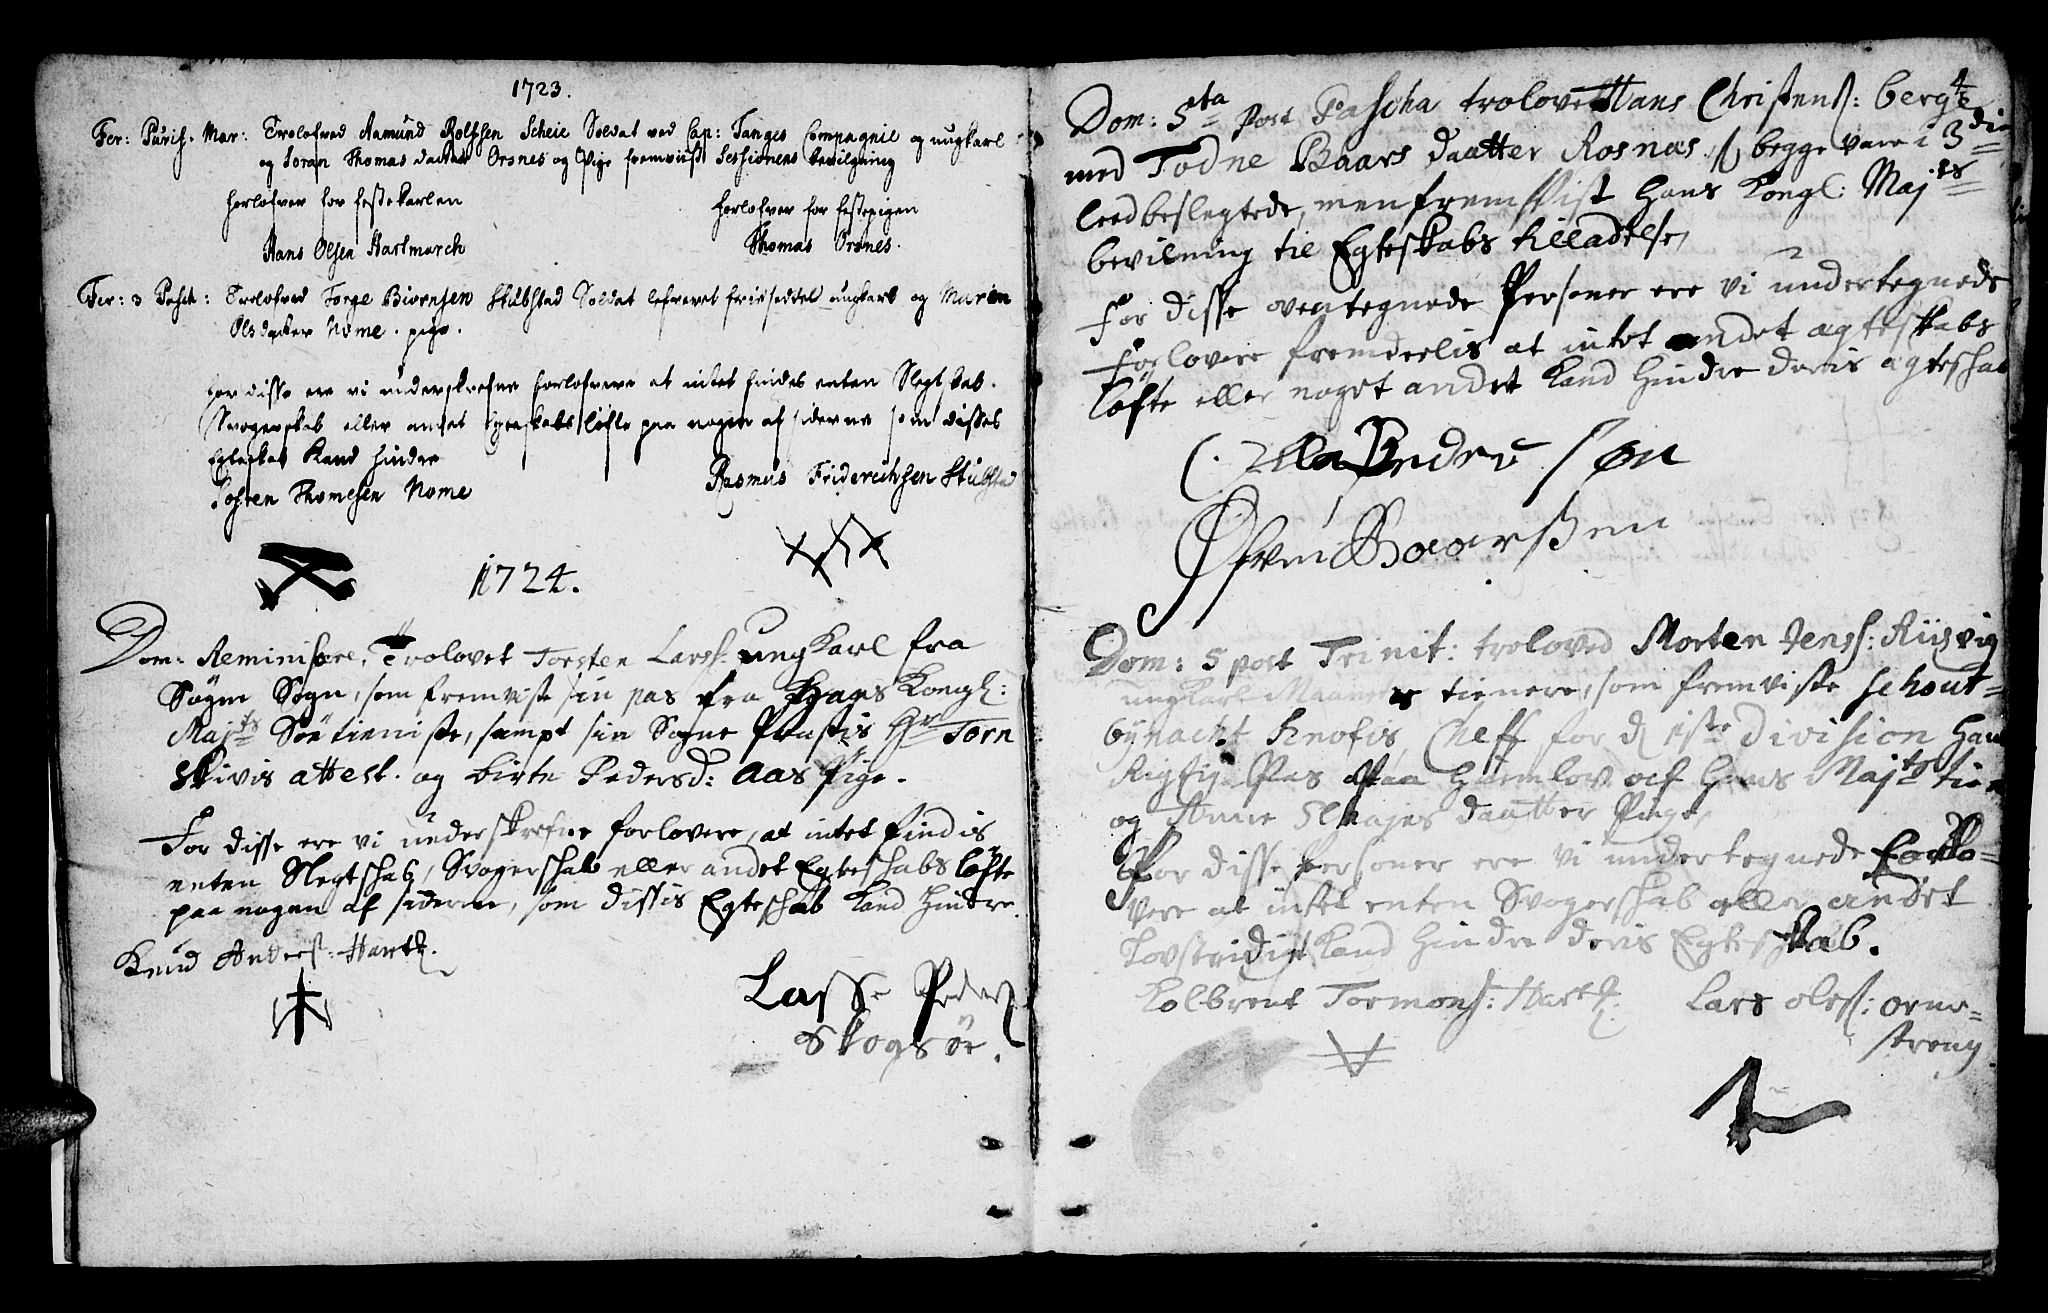 1723.
Fer: Purif: Mar: Trolofved Aamund Rolfsen Scheie Soldat ved Cap: Tanges Compagnie og ungkarl
og Soran Thomas daatter Orsnes og Pige fremviiste Sessionens bevilgning
forlofver for festekarlen
forlofver for festepigen
Hans Olsen Hartmarch
Thomas Orsnes.
Fer: 3 Pasch: Trolofved Torge Biørnsen Stubstad Soldat lefveret friseddel ungkarl og Maren
Ols datter Nome. pige.
for disse ere vi underskrefne forlofvere at intet findes enten Slegtskab.
Svogerskab eller andet Egteskabs løfte paa nogen af siderne som disses
Egteskab Kand hindre
Søfren Thomesen Nome
Rasmus Friderichsen Stubstad
1724.
Dom: Reminiscere, Trolovet Torsten Larss: ungkarl fra
Søgne Sogn, som fremviste sin pas fra Hans Kongl:
Majts Søe tieniste, sampt sin Sogne Præstis Hr Torn
skivis attest. og Birte Pedersd: Aas Pige.
For disse ere vi underskrefne forlovere, at intet findis
enten Slegtschab, Svogerschab eller andet Egteschabs løfte
paa nogen af siderne, som dissis Egteschab kand hindre.
Knud Anderss: Hartk.
Lasse Peders:
Skogsøe.
4
Dom: 5ta post Pascha trolovet Hans Christens: berge
med Todne Baars daatter Rosnæs, begge vare i 3die
leed beslegtede, men fremviist Hans Kongl: Majts
bevilning til Egteskabs tilladelse,
For disse oventegnede Personer ere vi undertegnede
Forlovere fremdeelis at intet andet ægteskabs
løfte eller noget andet kand hindre deris ægteschab
Olla Pedersøn
Øfven Baarsen
Dom: 5 post Trinit: troloved Morten Jenss: Riisvig
ungkarl tienere, som fremviste schout=
bÿnacht Knofis, Cheff for d 1ste Division hans
Rigtig Pas Paa Hiemlov af hans Majts tien
og Anne daatter Pige,
For disse Personer ere vi undertegnede Forlo=
vere at intet enten Svogerschab eller andet
Lovstridigt kand hindre deris Egteskab.
Colbrent Tormons: Hartk.
Lars oless: orne=
streng